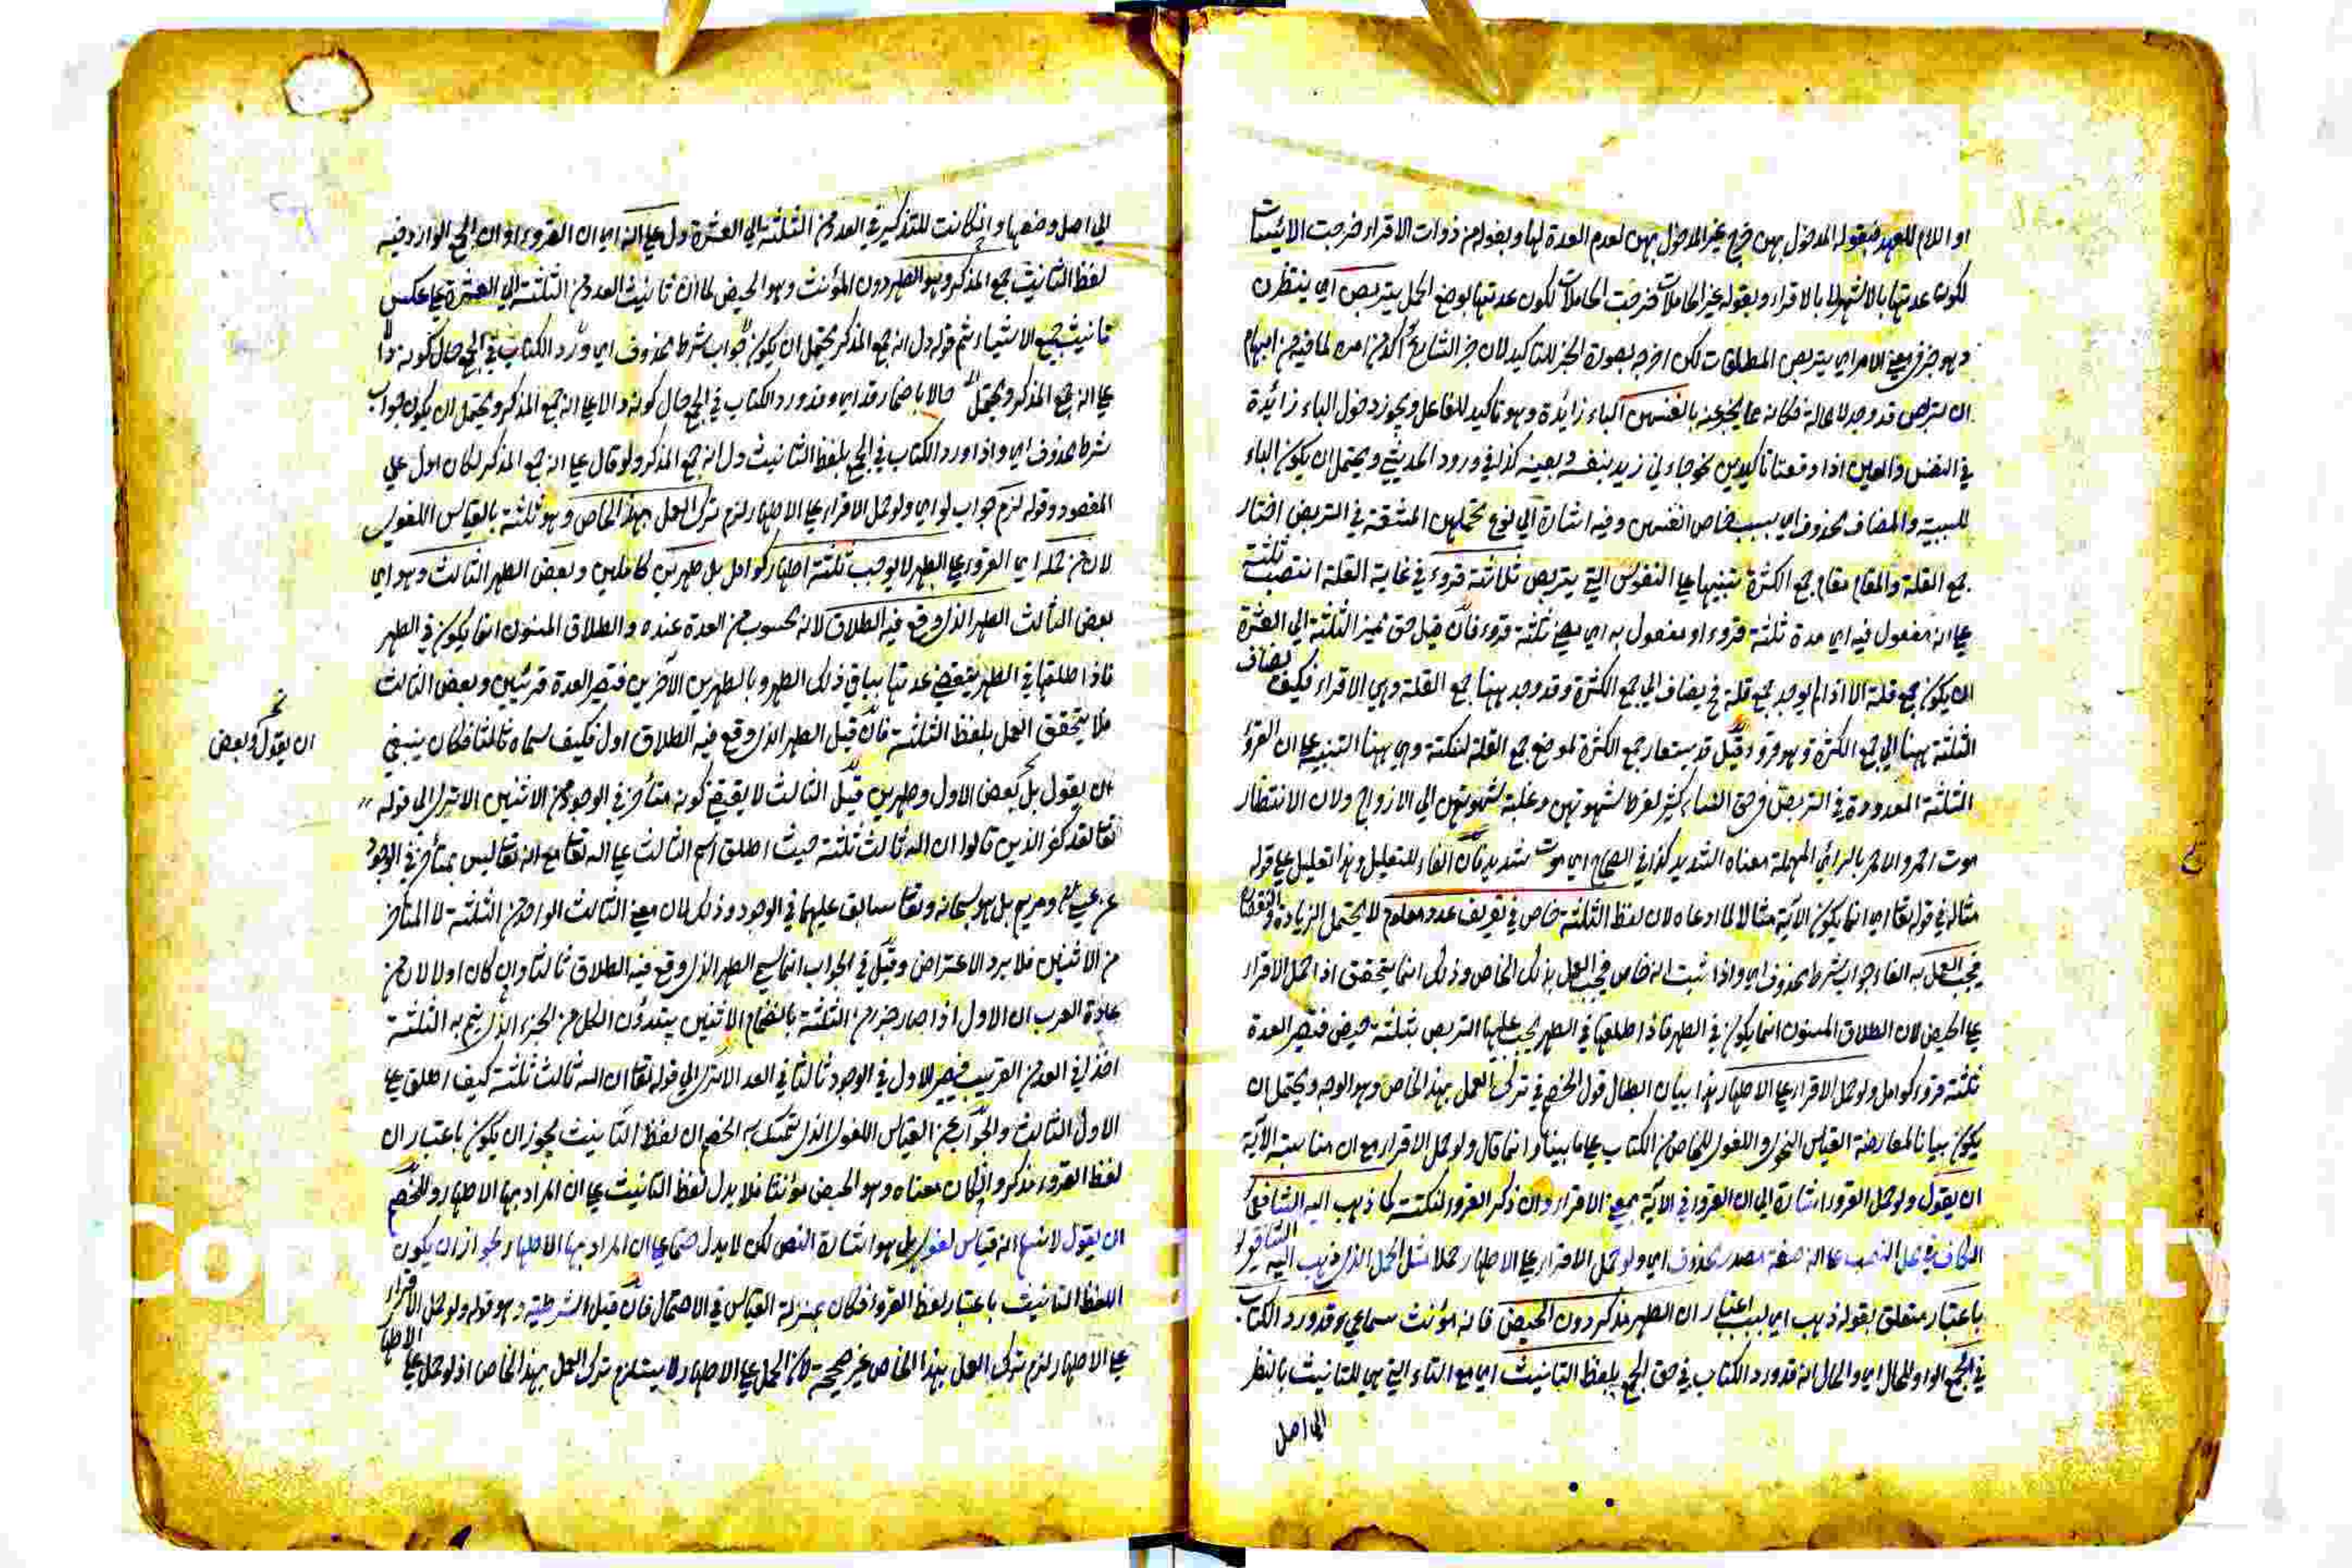 او اللام للعهد فبقوله المدخول بهن خرج غير المدخول بهن لعدم العدة لها وبقوله من ذوات الاقراء خرجت الآئيسات
لكون عدتها بالاشهر لا بالاقراء وبقوله غير الحاملات خرجت الحاملات لكون عدتها بوضع الحمل يتربصن اي ينتظرن
وهو خبر في معنى الامر اي يتربص المطلقات لكن اخرجه بصورة الخبر للتأكيد لان خبر الشارع آكد من امره لما فيه من ايهام
ان التربص قد وجد لا محالة فكانه عما يخبر عنه بانفسهن الباء زائدة وهو تأكيد للفاعل ويجوز دخول الباء زائدة
في النفس والعين اذا وقعتا تأكيدين نحو جاءني زيد بنفسه وبعينه كذا في ورود الحديثي ويحتمل ان يكون الباء
للسببية والمضاف محذوف اي بسبب خاص انفسهن وفيه اشارة الى نوع تحملهن المشقة في التربص اختار
جمع القلة والمقام مقام جمع الكثرة تنبيها على النفوس التي يتربص ثلاثة قروء في غاية القلة انتصب ثلثة
على انه مفعول فيه اي مدة ثلثة قروء او مفعول به اي مضي ثلثة قروء فان قيل حق مميز الثلثة الى العشرة
ان يكون جمع قلة الا اذا لم يوجد جمع قلة فح يضاف الى جمع الكثرة وقد وجد ههنا جمع القلة وهي الاقراء فكيف يضاف
الثلثة ههنا الى جمع الكثرة وهو قروء وقيل قد يستعار جمع الكثرة لموضع جمع القلة لنكتة وهي ههنا التنبيه على ان القروء
الثلثة المعدودة في التربص في حق النساء كثير لفرط شهوتهن وغلبة شهوتهن الى الازواج ولان الانتظار
موت احمر والاحمر بالرائي المهملة معناه الشديد كذا في الصحاح اي موت شديد فان الفاء للتعليل وهذا تعليل على قوله
مثاله في قوله تعا اي انما يكون الآية مثالا لما ادعاه لان لفظ الثلثة خاص في تعريف عدد معلوم لا يحتمل الزيادة والنقصان
فيجب العمل به الفاء جواب شرط محذوف اي واذا ثبت انه خاص فيجب العمل بذلك الخاص وذلك انما يتحقق اذا حمل الاقراء
على الحيض لان الطلاق المسنون انما يكون في الطهر فاذا طلقها في الطهر يجب عليها التربص بثلثة حيض فتصير العدة
ثلثة قروء كوامل ولو حمل الاقراء على الاطهار هذا بيان ابطال قول الخصم في ترك العمل بهذا الخاص وهو الوجه ويحتمل ان
يكون بيانا لمعارضة القياس النحوي واللغوي للخاص من الكتاب على ما بينا وانما قال ولو حمل الاقراء مع ان مناسبة الآية
ان يقول ولو حمل القروء اشارة الى ان القروء في الآية بمعنى الاقراء وان ذكر القروء لنكتة كما ذهب اليه الشافعي
الكاف في محل النصب على انه صفة مصدر محذوف اي ولو حمل الاقراء على الاطهار حملا مثل الحمل الذي ذهب اليه الشافعي
باعتبار متعلق بقوله ذهب اي بسبب اعتبار ان الطهر مذكر دون الحيض فانه مؤنث سماعي وقد ورد الكتاب
في الجمع الواو للحال اي والحال انه قد ورد الكتاب في حق الجمع بلفظ التانيث اي مع التاء التي هي للتانيث بالنظر
الى اصل
الى اصل وضعها وان كانت للتذكير في العدد من الثلثة الى العشرة دل على انه اي ان القروء او ان الجمع الوارد فيه
لفظ التانيث جمع المذكر وهو الطهر دون المؤنث وهو الحيض لما ان تانيث العدد من الثلثة الى العشرة على عكس
تانيث جميع الاشياء ثم قوله دل انه جمع المذكر يحتمل ان يكون جواب شرط محذوف اي ورد الكتاب في الجمع حال كونه دالا
على انه جمع المذكر ويحتمل حالا باضمار قد اي وقد ورد الكتاب في الجمع حال كونه دالا على انه جمع المذكر ويحتمل ان يكون جواب
شرط محذوف اي واذا ورد الكتاب في الجمع بلفظ التانيث دل انه جمع المذكر ولو قال على انه جمع المذكر لكان ادل على
المقصود وقوله لزم جواب لو اي ولو حمل الاقراء على الاطهار لزم ترك العمل بهذا الخاص وهو ثلثة بالقياس اللغوي
لان من حمله اي القروء على الطهر لا يوجب ثلثة اطهار كوامل بل طهرين كاملين وبعض الطهر الثالث وهو اي
بعض الثالث الطهر الذي وقع فيه الطلاق لانه محسوب من العدة عنده والطلاق المسنون انما يكون في الطهر
فاذا طلقها في الطهر ينقضي عدتها بباقي ذلك الطهر وبالطهرين الآخرين فتصير العدة قرئين وبعض الثالث
فلا يتحقق العمل بلفظ الثلثة فان قيل الطهر الذي وقع فيه الطلاق اول فكيف سماه ثالثا فكان ينبغي
ان يقول وبعض
ان يقول بل بعض الاول وطهرين قيل الثالث لا يقتضي كونه متأخر في الوجود من الاثنين الا ترى الى قوله
تعا لقد كفر الذين قالوا ان الله ثالث ثلثة حيث اطلق اسم الثالث على الله تعا مع انه تعا ليس بمتأخر في الوجود
عن عيسى ومريم بل هو سبحانه وتعا سابق عليهما في الوجود وذلك لان معنى الثالث الواحد من الثلثة لا المتأخر
من الاثنين فلا يرد الاعتراض وقيل في الجواب انما سمي الطهر الذي وقع فيه الطلاق ثالثا وان كان اولا لان من
عادة العرب ان الاول اذا صار جزء من الثلثة بانضمام الاثنين يبتدؤن الكل من الجزء الذي يتم به الثلثة
اخذا في العد من القريب فيصير الاول في الوجود ثالثا في العد الا ترى الى قوله تعا ان الله ثالث ثلثة كيف اطلق على
الاول الثالث والجواب عن القياس اللغوي الذي تمسك به الخصم ان لفظ التانيث يجوز ان يكون باعتبار ان
لفظ القروء مذكر وان كان معناه وهو الحيض مؤنثا فلا يدل لفظ التانيث على ان المراد بها الاطهار وللخصم
ان يقول لا نسلم انه قياس لغوي بل هو اشارة النص لكن لا يدل حتما على ان المراد بها الاطهار لجواز ان يكون
اللفظ التانيث باعتبار لفظ القروء فكان بمنزلة القياس في الاحتمال فان قيل الشرطية وهو قوله ولو حمل الاقراء
على الاطهار لزم ترك العمل بهذا الخاص غير صحيحة لان الحمل على الاطهار لا يستلزم ترك العمل بهذا الخاص اذ لو حمل على الاطهار